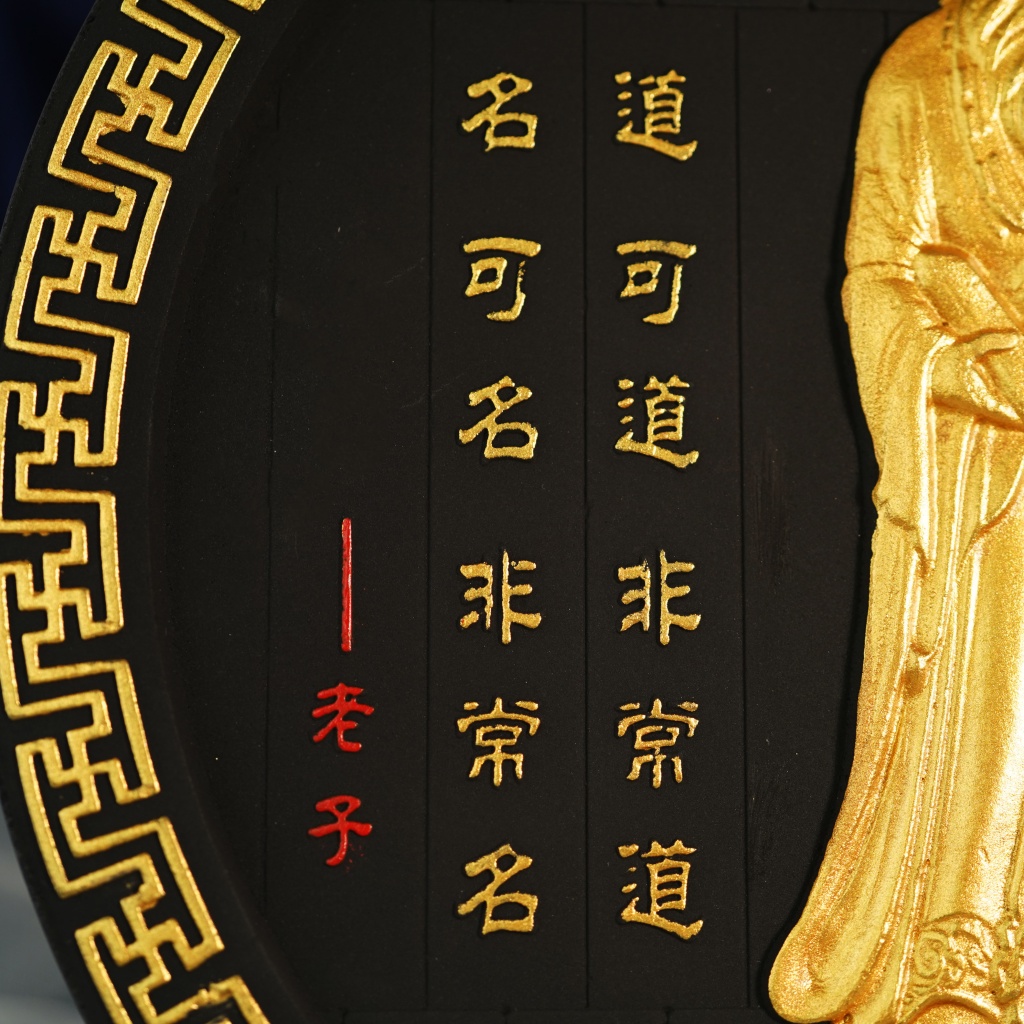 道可道非常道
名可名非常名
—老子